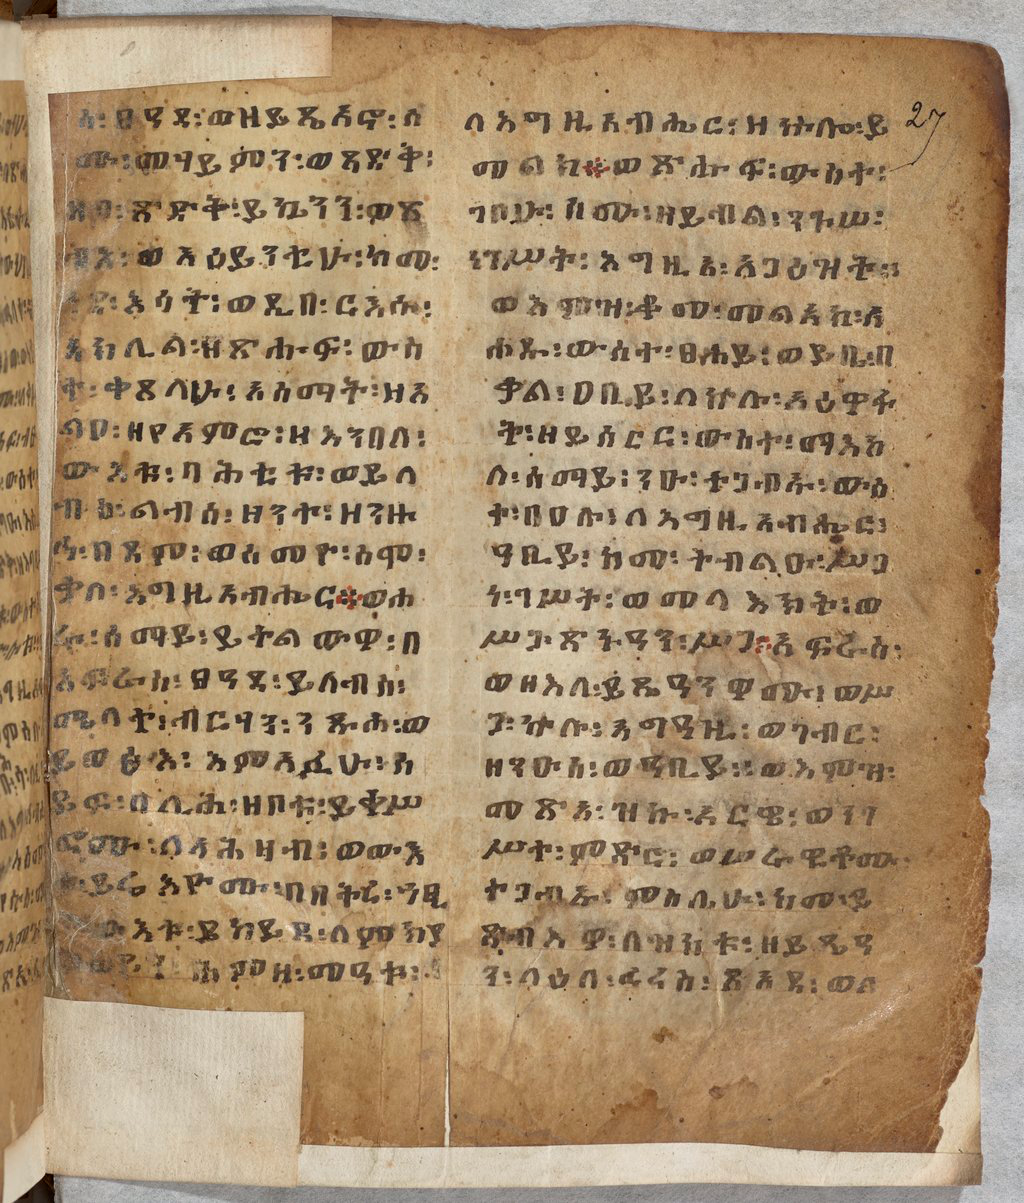 ስ፡ ፀዓዳ፡ ወዘይጼአኖ፡ ስ
ሙ፡ መሃይምን፡ ወጻድቅ፡
ዘበ፡ ጽድቅ፡ ይኴንን፡ ወጸ
ብእ፡ ወአዕይንቲሁ፡ ከመ፡
ነደ፡ እሳት፡ ወዲበ፡ ርእሱ፡
አክሊል፡ ዘጽሑፍ፡ ውስ
ቴ፡ ቀጸላሁ፡ አስማት፡ ዘአ
ልቦ፡ ዘየአምሮ፡ ዘእንበለ፡
ውእቱ፡ ባሕቲቱ፡ ወይለ
ብስ፡ ልብሰ፡ ዘንተ፡ ዘንዙ
ኅ፡ በደም፡ ወስመዮ፡ ስሞ፡
ቃለ፡ እግዚአብሔር፨ ወሐ
ራ፡ ሰማይ፡ ይትልውዎ፡ በ
አፍራስ፡ ፀዓዳ፡ ይለብሱ፡
ሜላት፡ ብርሃን፡ ንጹሐ፡ ወ
ይወፅእ፡ እምአፉሁ፡ ሰ
ይፍ፡ በሊሕ፡ ዘበቱ፡ ይቀሥ
ፎሙ፡ ለአሕዛብ፡ ወውእ
ቱ፡ ይሬእዮሙ፡ በበትረ፡ ኀፂ
ውእቱ፡ ይከይድ፡ ለምክያ
ምዘ፡ መዓቱ፡
ለእግዚአብሔር፡ ዘኵሎ፡ ይ
መልክ፨ ወጽሑፍ፡ ውስተ፡
ገቦሁ፡ ስሙ፡ ዘይብል፡ ንጉሠ፡
ነገሥት፡ እግዚአ፡ አጋዕዝት፡፡
ወእምዝ፡ ቆመ፡ መልአክ፡ አ
ሐዱ፡ ውስተ፡ ፀሐይ፡ ወይቤ፡ በ
ቃል፡ ዐቢይ፡ ለኵሉ፡ አዕዋፋ
ት፡ ዘይሰርር፡ ውስተ፡ ማእከ
ለ፡ ሰማይ፡ ንዑ፡ ተጋብኡ፡ ውስ
ተ፡ በዐሉ፡ ለእግዚአብሔር፡
ዓቢይ፡ ከመ፡ ትብልዑ፡ ሥጋ
ነ፡ ገሥት፡ ወመላእክት፡ ወ
ሥጋ፡ ጽኑዓን፡ ሥጋ፡ አፍራስ፡
ወዘእለ፡ ይጼዓንዎሙ፡ ወሥ
ጋ፡ ኵሉ፡ አግዓዚ፡ ወገብር፡
ዘንዑስ፡ ወዓቢይ፡፡ ወእምዝ፡
መጽአ፡ ዝኩ፡ አርዌ፡ ወነገ
ሥተ፡ ምድር፡ ወሠራዊቶሙ
ተጋብኡ፡ ምስሌሁ፡ ከመ፡ ይ
ጽብእዎ፡ ለዝክቱ፡ ዘይጼዓ
ን፡ ላዕለ፡ ፈረስ፡ ጸአዳ፡ ወለ
27